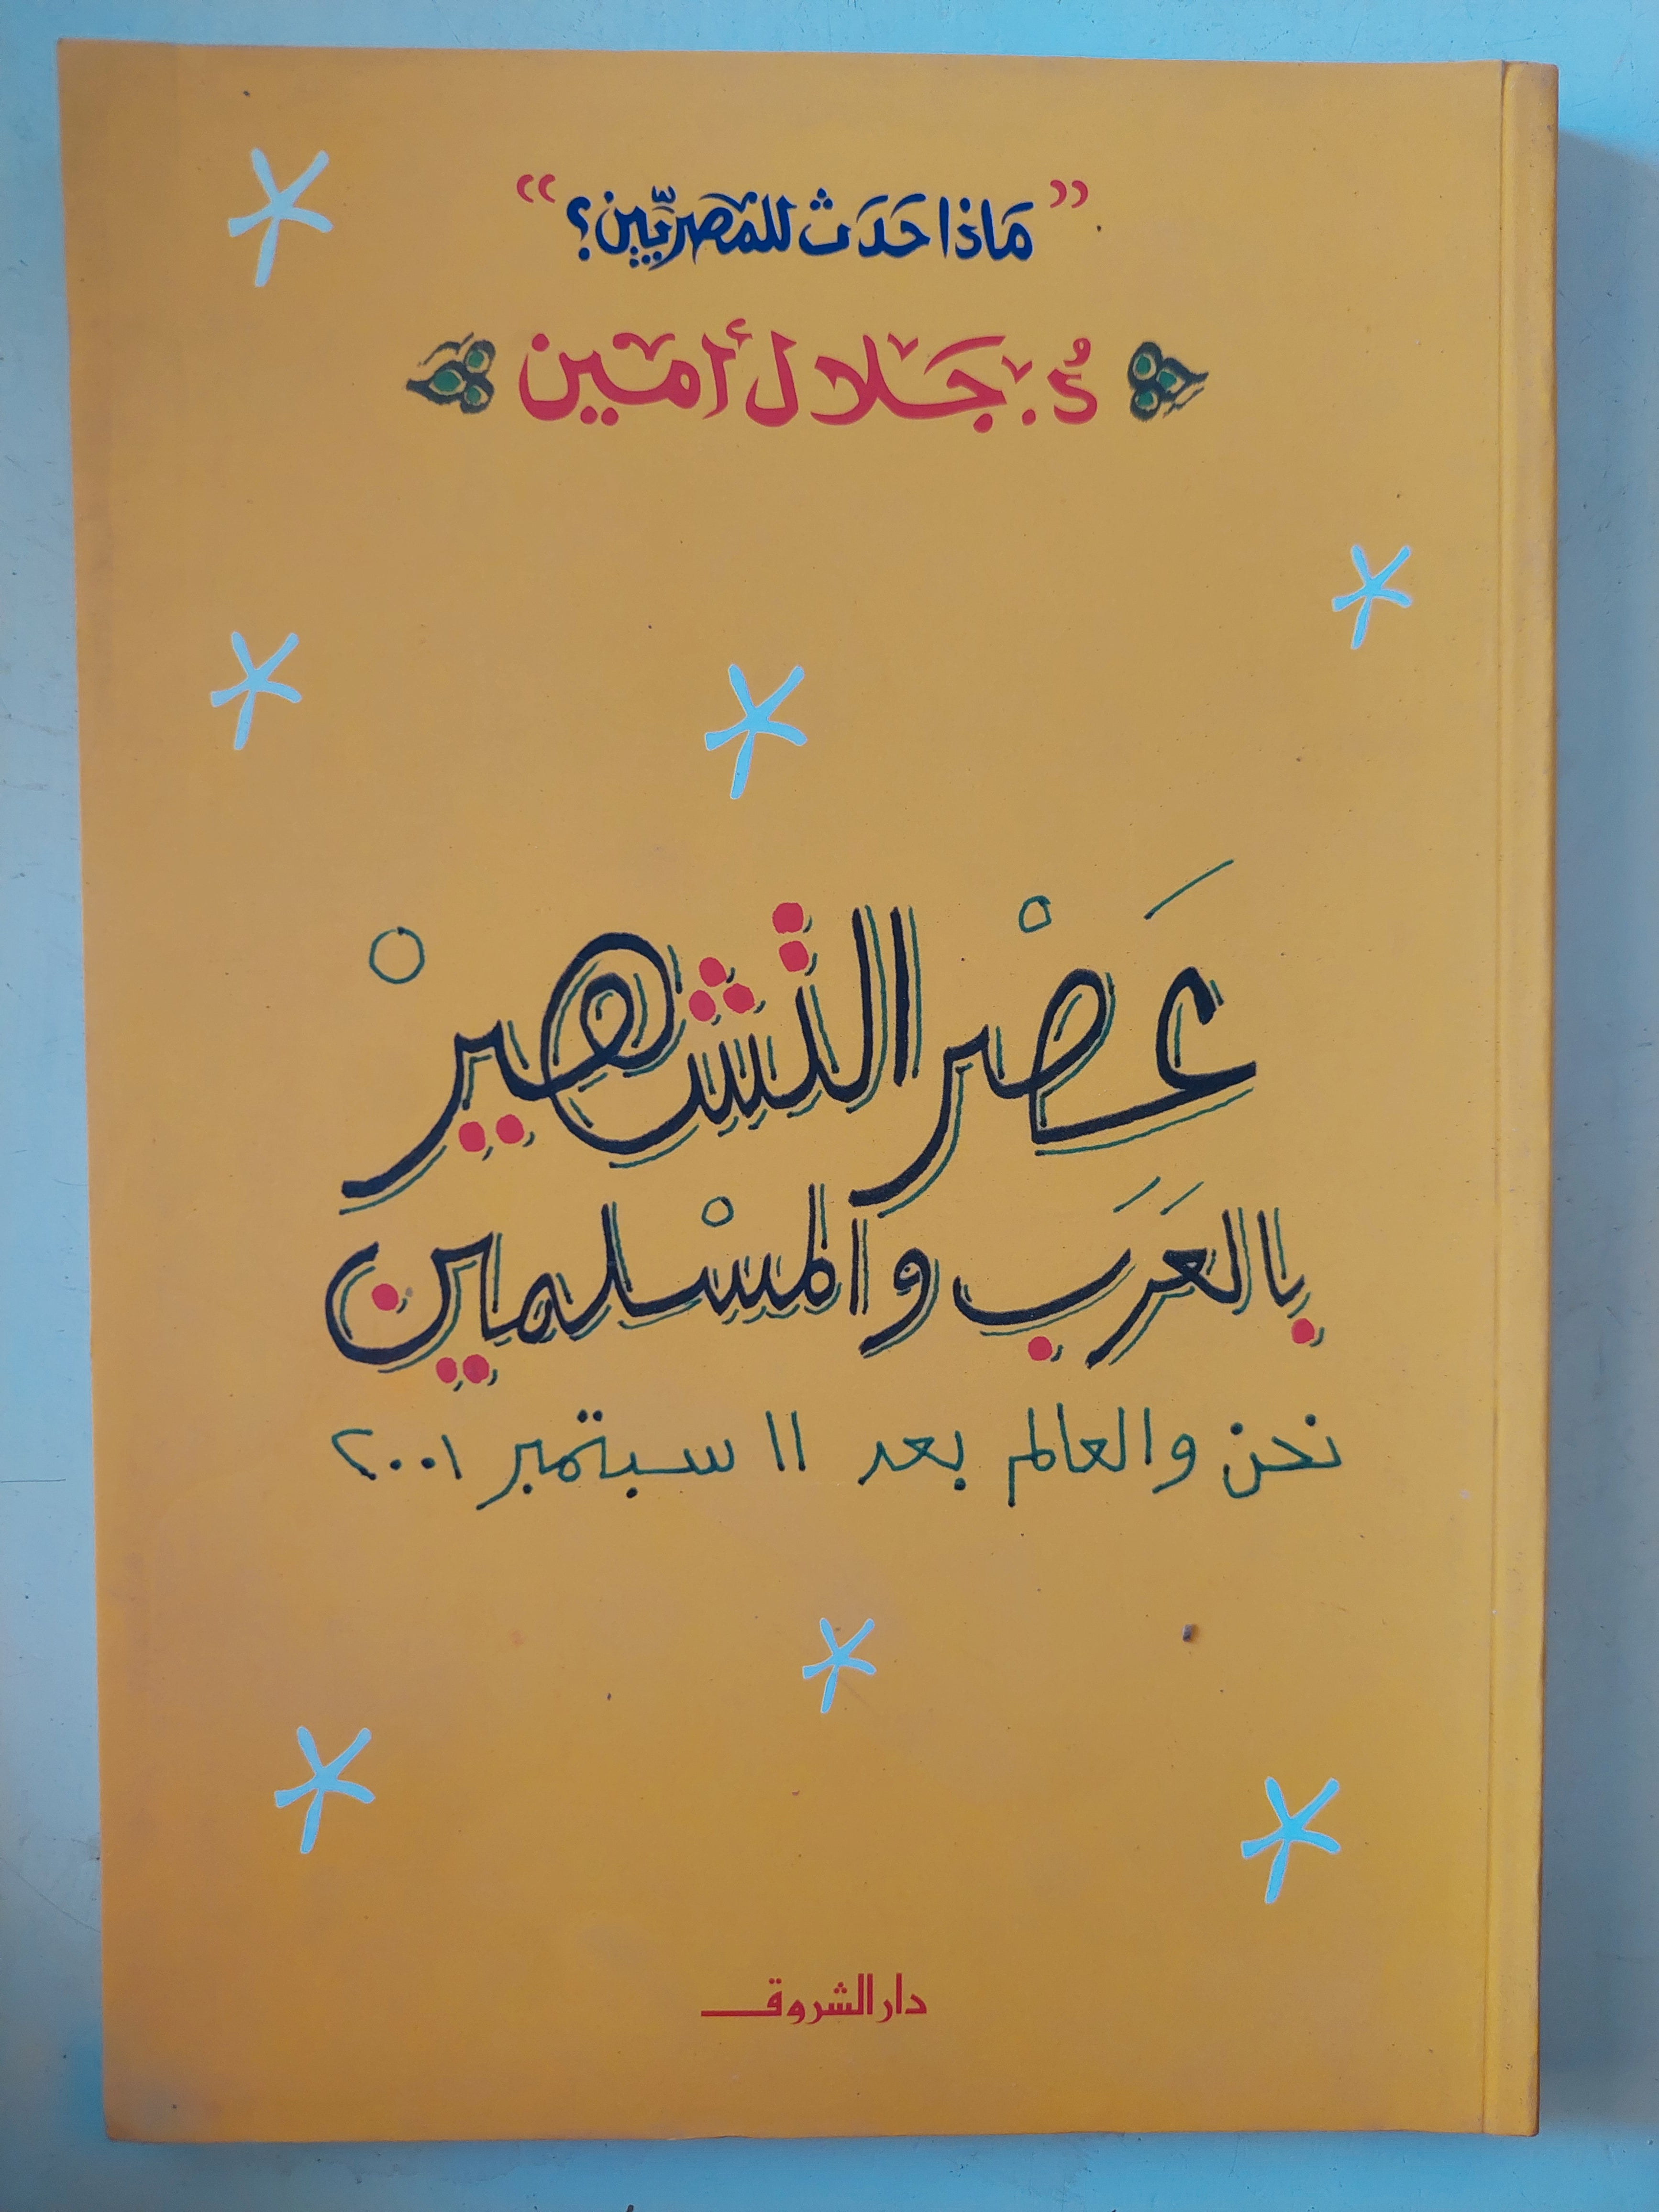 "مَاذا حَدَث للمَصريّين؟"
د. جَلال أمين
عَصْر التشهيرْ
بالعَرَب والمسْلمين
نحن والعالم بعد ١١ سبتمبر ٢٠٠١
دار الشروق